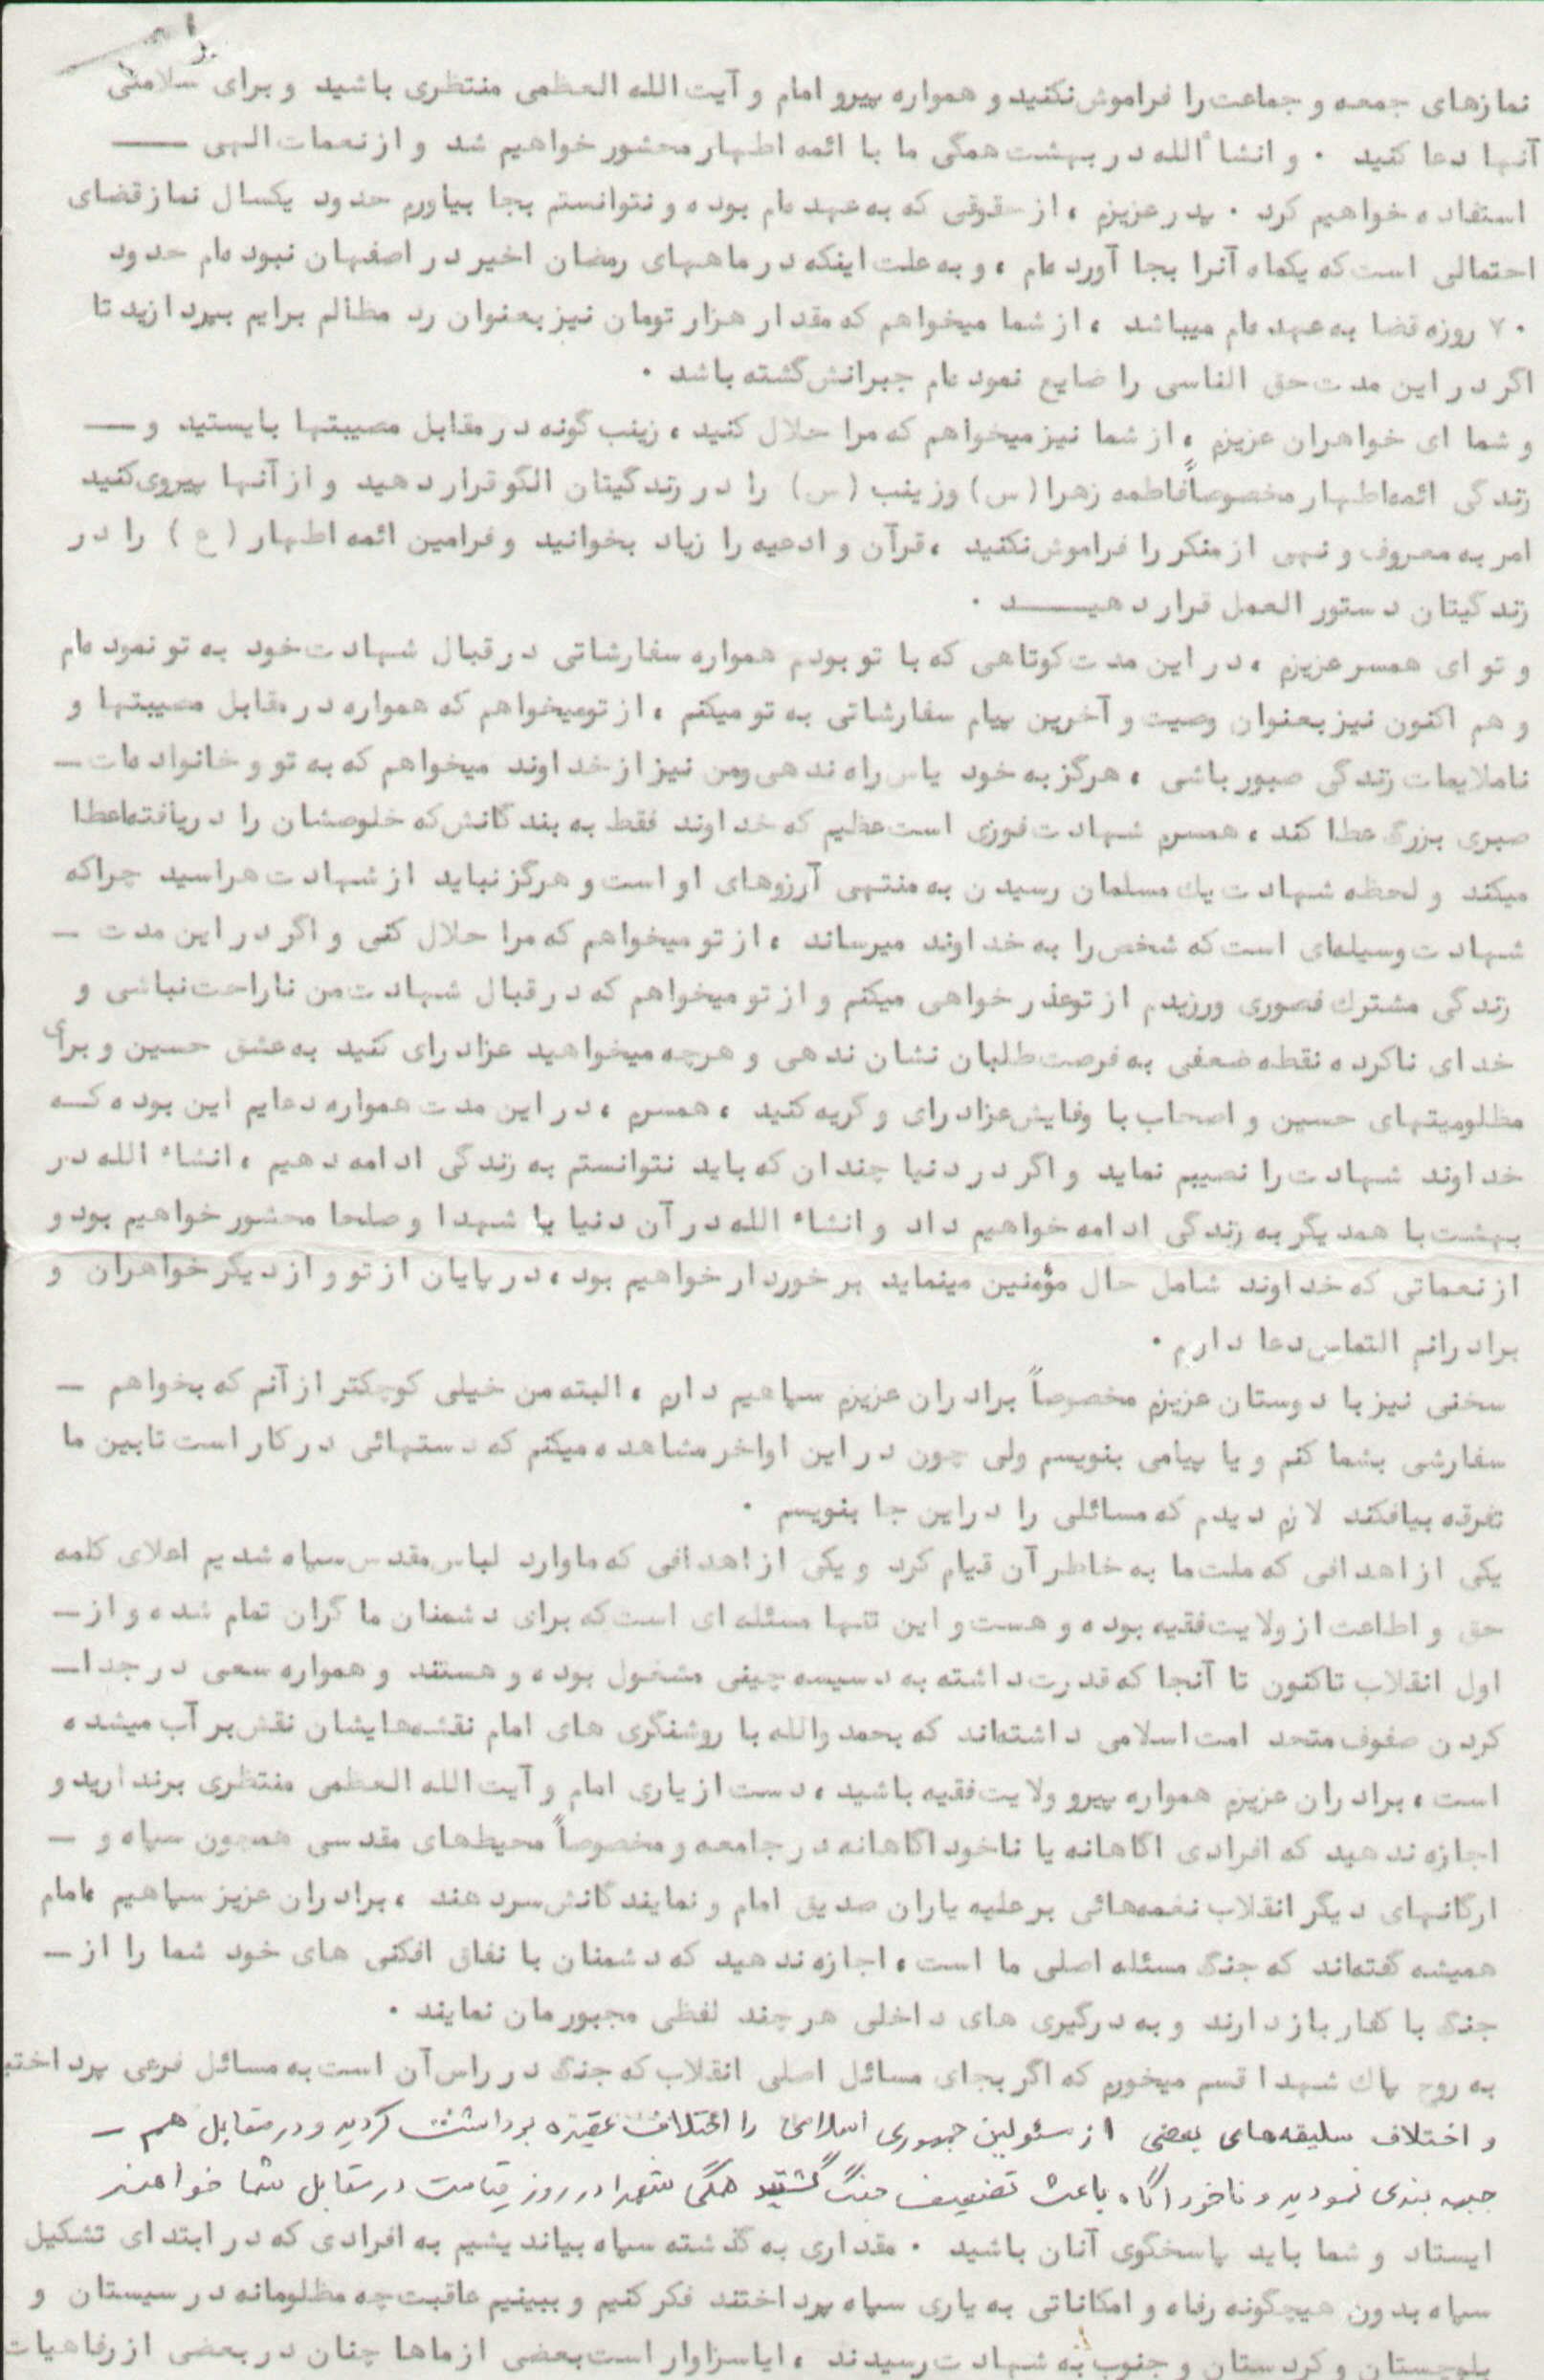 نمازهای جمعه و جماعت را فراموش نکنید و همواره پیرو امام و آیت الله العظمی منتظری باشید و برای سلامتی
آنها دعا کنید . و انشاءالله در بهشت همگی ما با ائمه اطهار محشور خواهیم شد و از نعمات الهی ــ
استفاده خواهیم کرد . پدر عزیزم ، از حقوقی که به عهدهام بوده و نتوانستم بجا بیاورم حدود یکسال نماز قضای
احتمالی است که یکماه آنرا بجا آوردهام ، و به علت اینکه در ماههای رمضان اخیر در اصفهان نبودهام حدود
۷۰ روزه قضا به عهدهام میباشد ، از شما میخواهم که مقدار هزار تومان نیز بعنوان رد مظالم برایم بپردازید تا
اگر در این مدت حق الناسی را ضایع نمودهام جبرانش گشته باشد .
و شما ای خواهران عزیزم ، از شما نیز میخواهم که مرا حلال کنید ، زینب گونه در مقابل مصیبتها بایستید و ــ
زندگی ائمه اطهار مخصوصاً فاطمه زهرا (س) و زینب (س) را در زندگیتان الگو قرار دهید و از آنها پیروی کنید
امر به معروف و نهی از منکر را فراموش نکنید ، قرآن و ادعیه را زیاد بخوانید و فرامین ائمه اطهار (ع) را در
زندگیتان دستور العمل قرار دهیــــد .
و تو ای همسر عزیزم ، در این مدت کوتاهی که با تو بودم همواره سفارشاتی در قبال شهادت خود به تو نمودهام
و هم اکنون نیز بعنوان وصیت و آخرین پیام سفارشاتی به تو میکنم ، از تو میخواهم که همواره در مقابل مصیبتها و
ناملایمات زندگی صبور باشی ، هرگز به خود یاس راه ندهی و من نیز از خداوند میخواهم که به تو و خانوادهات ــ
صبری بزرگ عطا کند ، همسرم شهادت فوزی است عظیم که خداوند فقط به بندگانش که خلوصشان را دریافته اعطا
میکند و لحظه شهادت یك مسلمان رسیدن به منتهی آرزوهای او است و هرگز نباید از شهادت هراسید چراکه
شهادت وسیلهای است که شخص را به خداوند میرساند ، از تو میخواهم که مرا حلال کنی و اگر در این مدت ــ
زندگی مشترك قصوری ورزیدم از تو عذر خواهی میکنم و از تو میخواهم که در قبال شهادت من ناراحت نباشی و
خدای ناکرده نقطه ضعفی به فرصت طلبان نشان ندهی و هرچه میخواهید عزاداری کنید به عشق حسین و برای
مظلومیتهای حسین و اصحاب با وفایش عزاداری و گریه کنید ، همسرم ، در این مدت همواره دعایم این بوده کــه
خداوند شهادت را نصیبم نماید و اگر در دنیا چندان که باید نتوانستم به زندگی ادامه دهیم ، انشاء الله در
بهشت با همدیگر به زندگی ادامه خواهیم داد و انشاء الله در آن دنیا با شهدا و صلحا محشور خواهیم بود و
از نعماتی که خداوند شامل حال مؤمنین مینماید برخوردار خواهیم بود ، در پایان از تو و از دیگر خواهران و
برادرانم التماس دعا دارم .
سخنی نیز با دوستان عزیزم مخصوصاً برادران عزیزم سپاهیم دارم ، البته من خیلی کوچکتر از آنم که بخواهم ــ
سفارشی بشما کنم و یا پیامی بنویسم ولی چون در این اواخر مشاهده میکنم که دستهائی در کار است تا بین ما
تفرقه بیافکند لازم دیدم که مسائلی را در این جا بنویسم .
یکی از اهدافی که ملت ما به خاطر آن قیام کرد و یکی از اهدافی که ما وارد لباس مقدس سپاه شدیم اعلای کلمه
حق و اطاعت از ولایت فقیه بوده و هست و این تنها مسئله ای است که برای دشمنان ما گران تمام شده و از ــ
اول انقلاب تاکنون تا آنجا که قدرت داشته به دسیسه چینی مشغول بوده و هستند و همواره سعی در جدا ــ
کردن صفوف متحد امت اسلامی داشتهاند که بحمد والله با روشنگری های امام نقشههایشان نقش بر آب میشده
است ، برادران عزیزم همواره پیرو ولایت فقیه باشید ، دست از یاری امام و آیت الله العظمی منتظری برندارید و
اجازه ندهید که افرادی اگاهانه یا ناخوداگاهانه در جامعه و مخصوصاً محیطهای مقدسی همچون سپاه و ــ
ارگانهای دیگر انقلاب نغمههائی بر علیه یاران صدیق امام و نمایندگانش سر دهند ، برادران عزیز سپاهیم ، امام
همیشه گفتهاند که جنگ مسئله اصلی ما است ، اجازه ندهید که دشمنان با نفاق افکنی های خود شما را از ــ
جنگ با کفار باز دارند و به درگیری های داخلی هرچند لفظی مجبورمان نمایند .
به روح پاك شهدا قسم میخورم که اگر بجای مسائل اصلی انقلاب که جنگ در راس آن است به مسائل فرعی پرداختید
و اختلاف سلیقه های بعضی از مسئولین جمهوری اسلامی را اختلاف عقیده برداشت کردید و در مقابل هم ــ
جبهه بندی نمودید و ناخوداگاه باعث تضعیف جنگ گشتید همگی شهدا در روز قیامت در مقابل شما خواهند
ایستاد و شما باید پاسخگوی آنان باشید . مقداری به گذشته سپاه بیاندیشیم به افرادی که در ابتدای تشکیل
سپاه بدون هیچگونه رفاه و امکاناتی به یاری سپاه پرداختند فکر کنیم و ببینیم عاقبت چه مظلومانه در سیستان و
بلوچستان و کردستان و جنوب به شهادت رسیدند ، ایا سزاوار است بعضی از ماها چنان در بعضی از رفاهیات